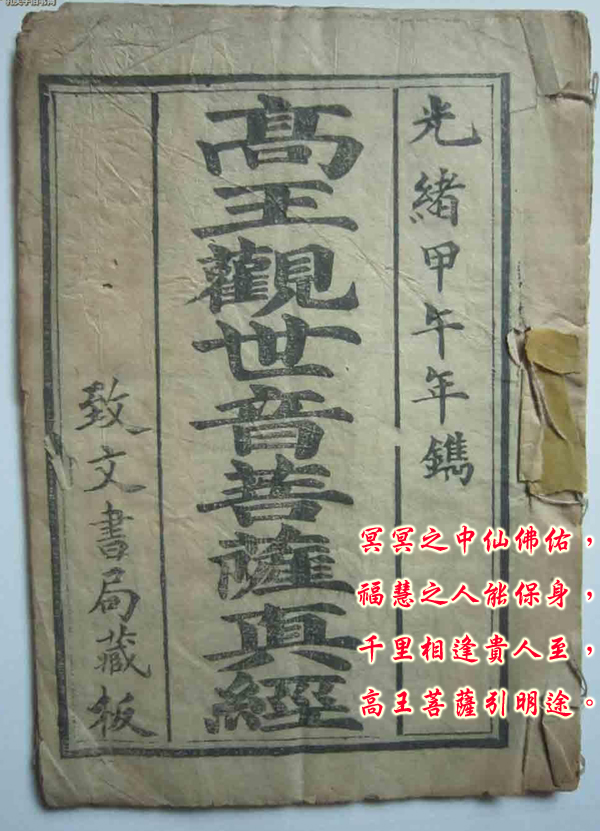 光緒甲午年鐫
高王觀世音菩薩真經
致文書局藏板
冥冥之中仙佛佑，
福慧之人能保身，
千里相逢貴人至，
高王菩薩引明途。